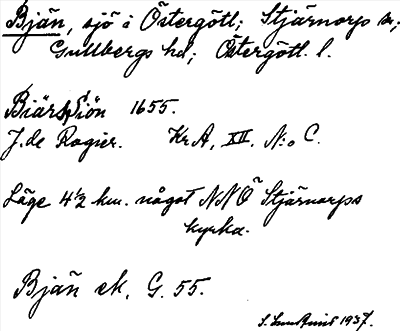 Bjän, sjö i Östergötl; Stjärnorps sn;
Gullbergs hd; Östergötl. l.
Biärs Siön 1655.
J. de Rogier. KrA, XII. N:o C.
Läge 4½ km. något NNÖ Stjärnorps
kyrka.
Bjän ek. G. 55.
1937.